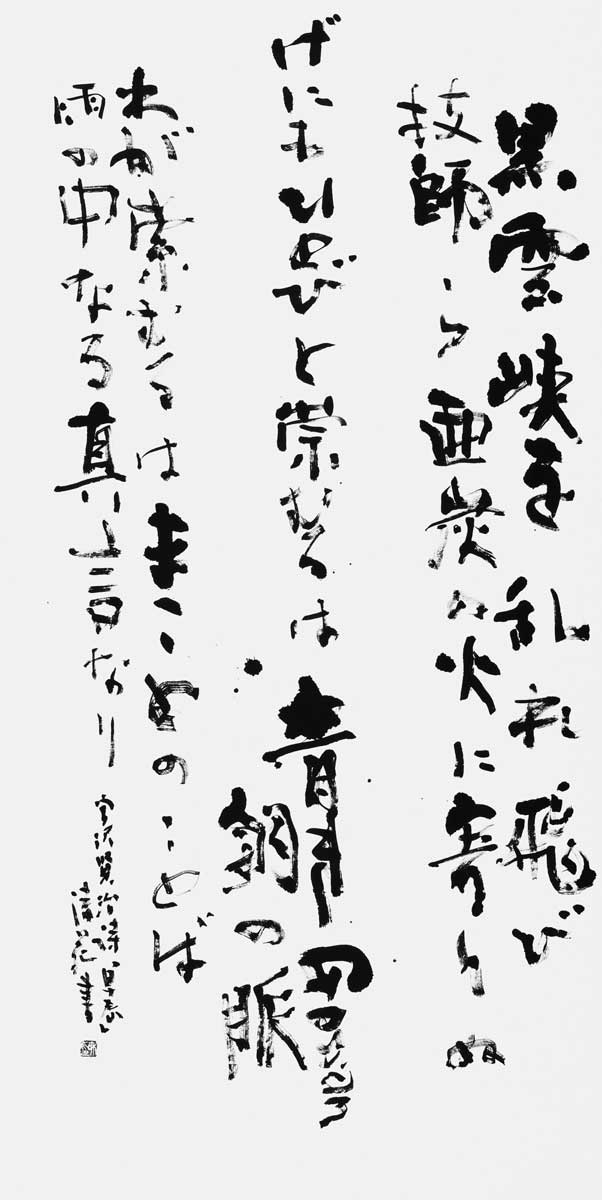 黒雲峡を乱れ飛び
技師ら亜炭の火に寄りぬ
げにもひとびと崇むるは青き Gossan
銅の脈
わが索むるはまことのことば
雨の中なる真言なり
宮沢賢治詩「早春」
書